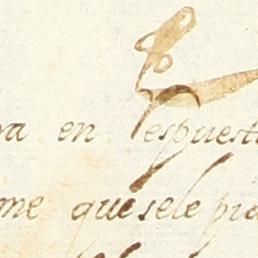 va en respuest
me que se le pi